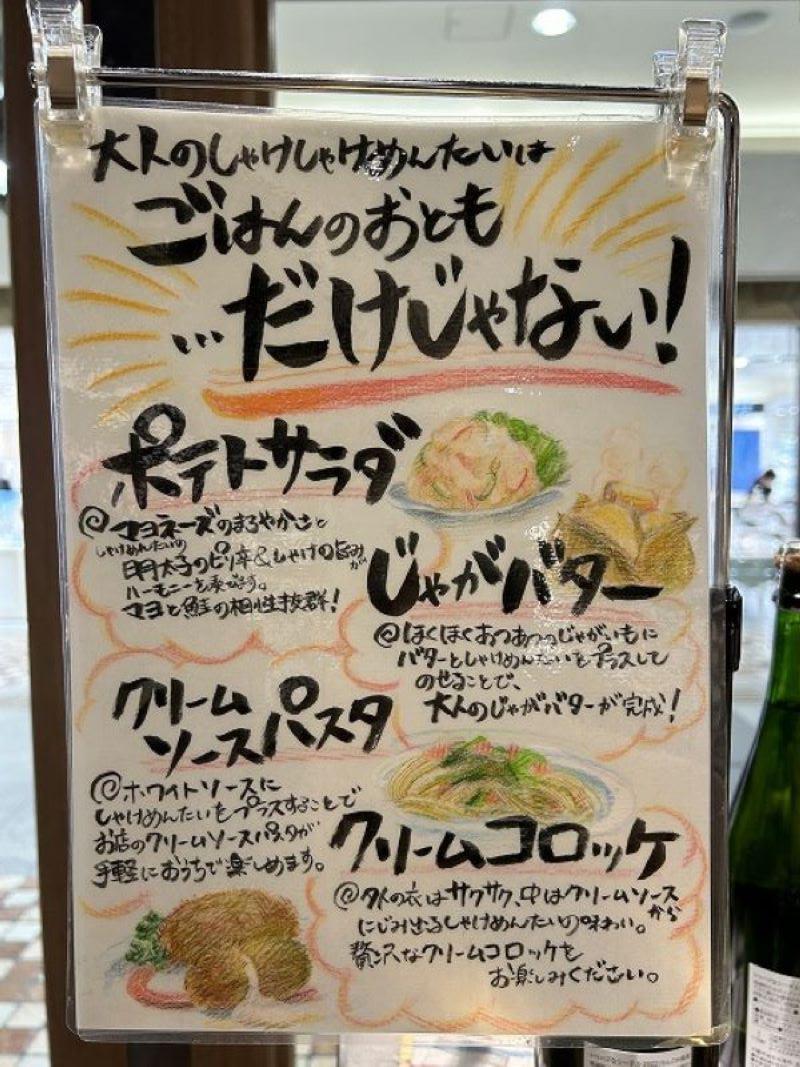 大人のしゃけしゃけめんたいは
ごはんのおとも
…だけじゃない!
ポテトサラダ
@マヨネーズのまろやかさと
しゃけめんたいの
明太子のピリ辛&しゃけの旨みが
ハーモニーを奏でます。
マヨと鮭の相性抜群!
じゃがバター
@ほくほくあつあつのじゃがいもに
バターとしゃけめんたいをプラスして
のせることで、
大人のじゃがバターが完成!
クリーム
ソースパスタ
@ホワイトソースに
しゃけめんたいをプラスすることで
お店のクリームソースパスタが
手軽におうちで楽しめます。
クリームコロッケ
@外の衣はサクサク、中はクリームソースから
にじみ出るしゃけめんたいの味わい。
贅沢なクリームコロッケを
お楽しみください。